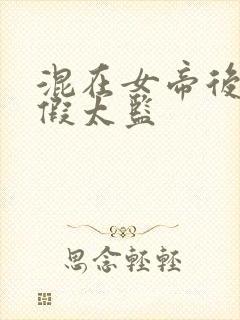 混在女帝後
假太監
思念輕輕